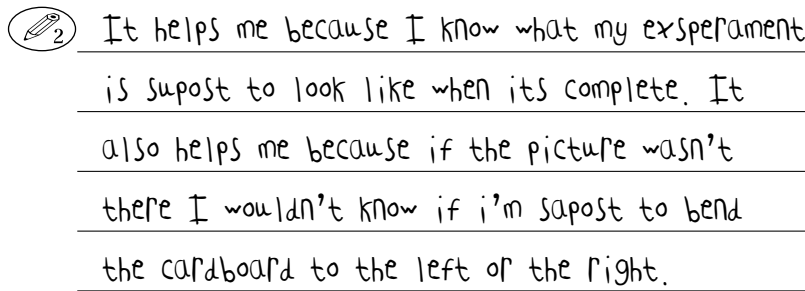 2 It helps me because I know what my exsperament
is supost to look like when its complete. It
also helps me because if the picture wasn't
there I wouldn't know if i'm sapost to bend
the cardboard to the left or the right.